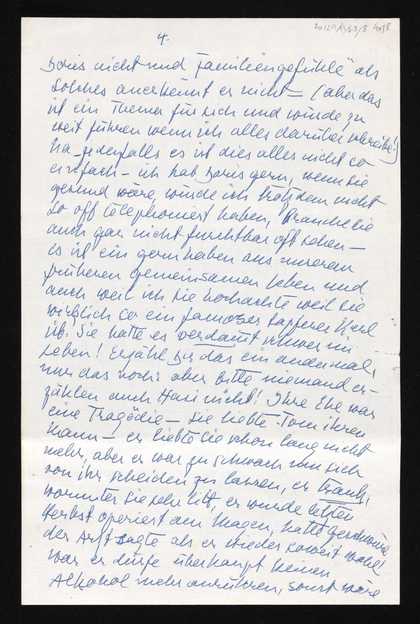 4.
Doris nicht und "Familiengefühle" als
solches anerkennt er nicht – (aber das
ist ein Thema für sich und würde zu
weit führen wenn ich alles darüber schreibe!)
Na – jedenfalls es ist dies alles nicht so
einfach – ich hab Doris gern, wenn sie
gesund wäre, würde ich trotzdem nicht
so oft telephoniert haben, brauche sie
auch gar nicht furchtbar oft sehen –
es ist ein gern haben aus unserem
früheren gemeinsamen Leben und
auch weil ich sie hochachte weil sie
wirklich so ein famoser tapferer Kerl
ist. Sie hatte es verdammt schwer im
Leben! Erzähl Dir das ein andermal,
nur das noch: aber bitte niemand er-
zählen auch Hani nicht! Ihre Ehe war
eine Tragödie – sie liebte Tom ihren
Mann – er liebte sie schon lang nicht
mehr, aber er war zu schwach um sich
von ihr scheiden zu lassen, er trank,
worunter sie sehr litt, er wurde letzten
Herbst operiert am Magen, hatte Geschwüre
der Arzt sagte als er wieder soweit wohl
war er dürfe überhaupt keinen
Alkohol mehr anrühren, sonst wäre